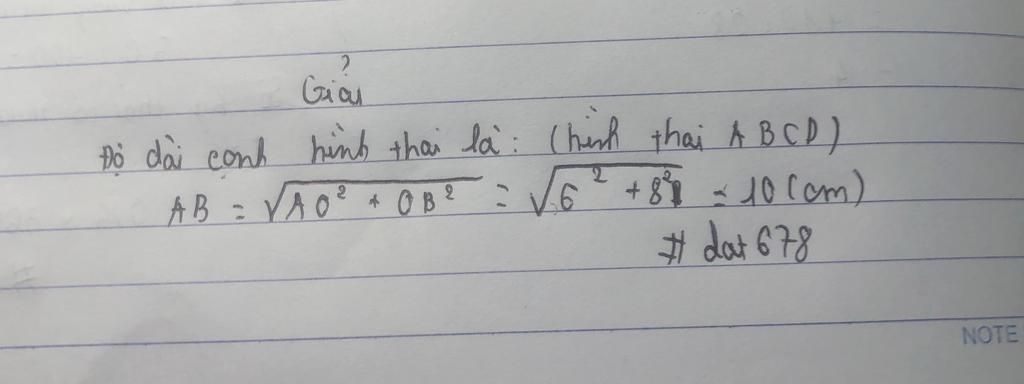 Giải
Độ dài cạnh hình thai là: (hình thai ABCD)
AB = √AO² + OB² = √6² + 8² = 10 (cm)
# dat678
NOTE